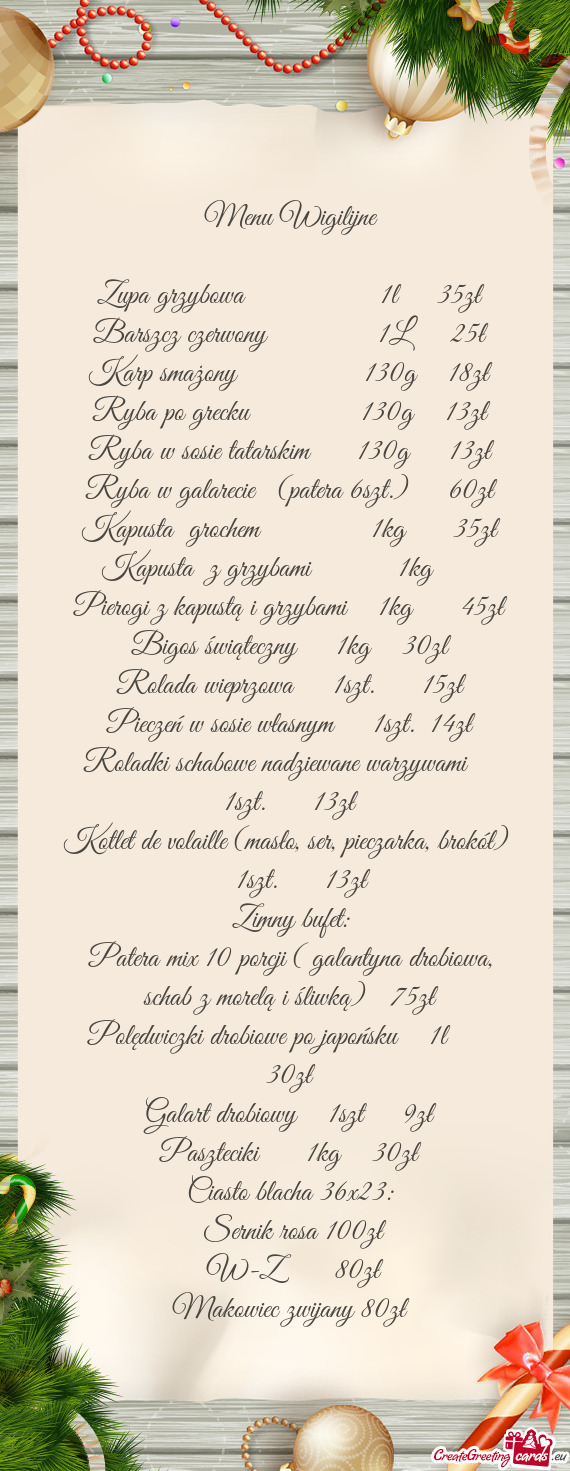 Menu Wigilijne
Zupa grzybowa 1l 35zł
Barszcz czerwony 1L 25ł
Karp smażony 130g 18zł
Ryba po grecku 130g 13zł
Ryba w sosie tatarskim 130g 13zł
Ryba w galarecie (patera 6szt.) 60zł
Kapusta grochem 1kg 35zł
Kapusta z grzybami 1kg
Pierogi z kapustą i grzybami 1kg 45zł
Bigos świąteczny 1kg 30zl
Rolada wieprzowa 1szt. 15zł
Pieczeń w sosie własnym 1szt. 14zł
Roladki schabowe nadziewane warzywami
1szt. 13zł
Kotlet de volaille (masło, ser, pieczarka, brokół)
1szt. 13zł
Zimny bufet:
Patera mix 10 porcji ( galantyna drobiowa,
schab z morelą i śliwką) 75zł
Polędwiczki drobiowe po japońsku 1l
30zł
Galart drobiowy 1szt 9zł
Paszteciki 1kg 30zł
Ciasto blacha 36x23:
Sernik rosa 100zł
W-Z 80zł
Makowiec zwijany 80zł
CreateGreetingcards.eu